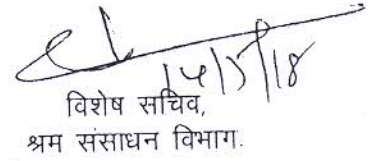 14/5/18
विशेष सचिव,
श्रम संसाधन विभाग.